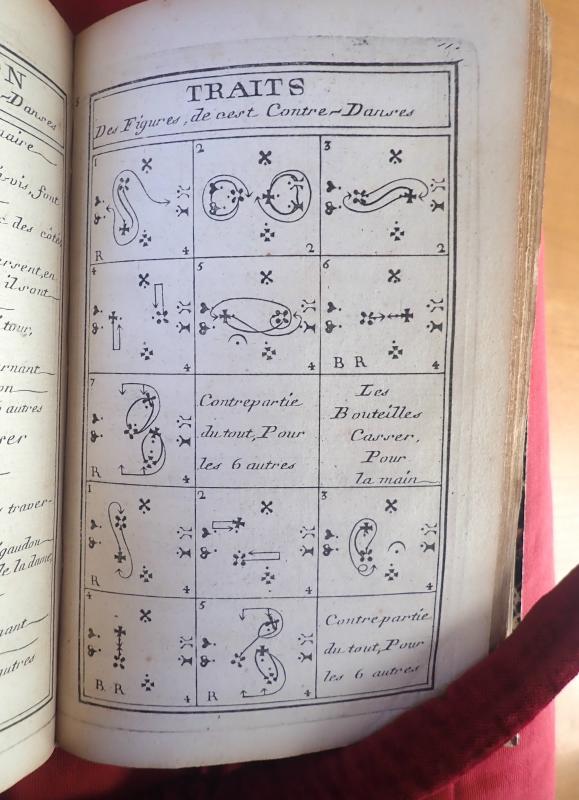 ON
-Danses
naire
-vis, font
des côtés
ersent, en
ils ont
tour,
rnant
on
6 autres
ser
traver-
gaudon
de la dame,
nant
autres
TRAITS
Des Figures, de cest Contre-Danses
1 2 3
R 4 2 2
4 5 6
4 4 B R 4
7
R 4
Contrepartie
du tout, Pour
les 6 autres
Les
Bouteilles
Casser,
Pour
la main
1 2 3
R 4 4 4
4 5
B R 4 R 4
Contrepartie
du tout, Pour
les 6 autres